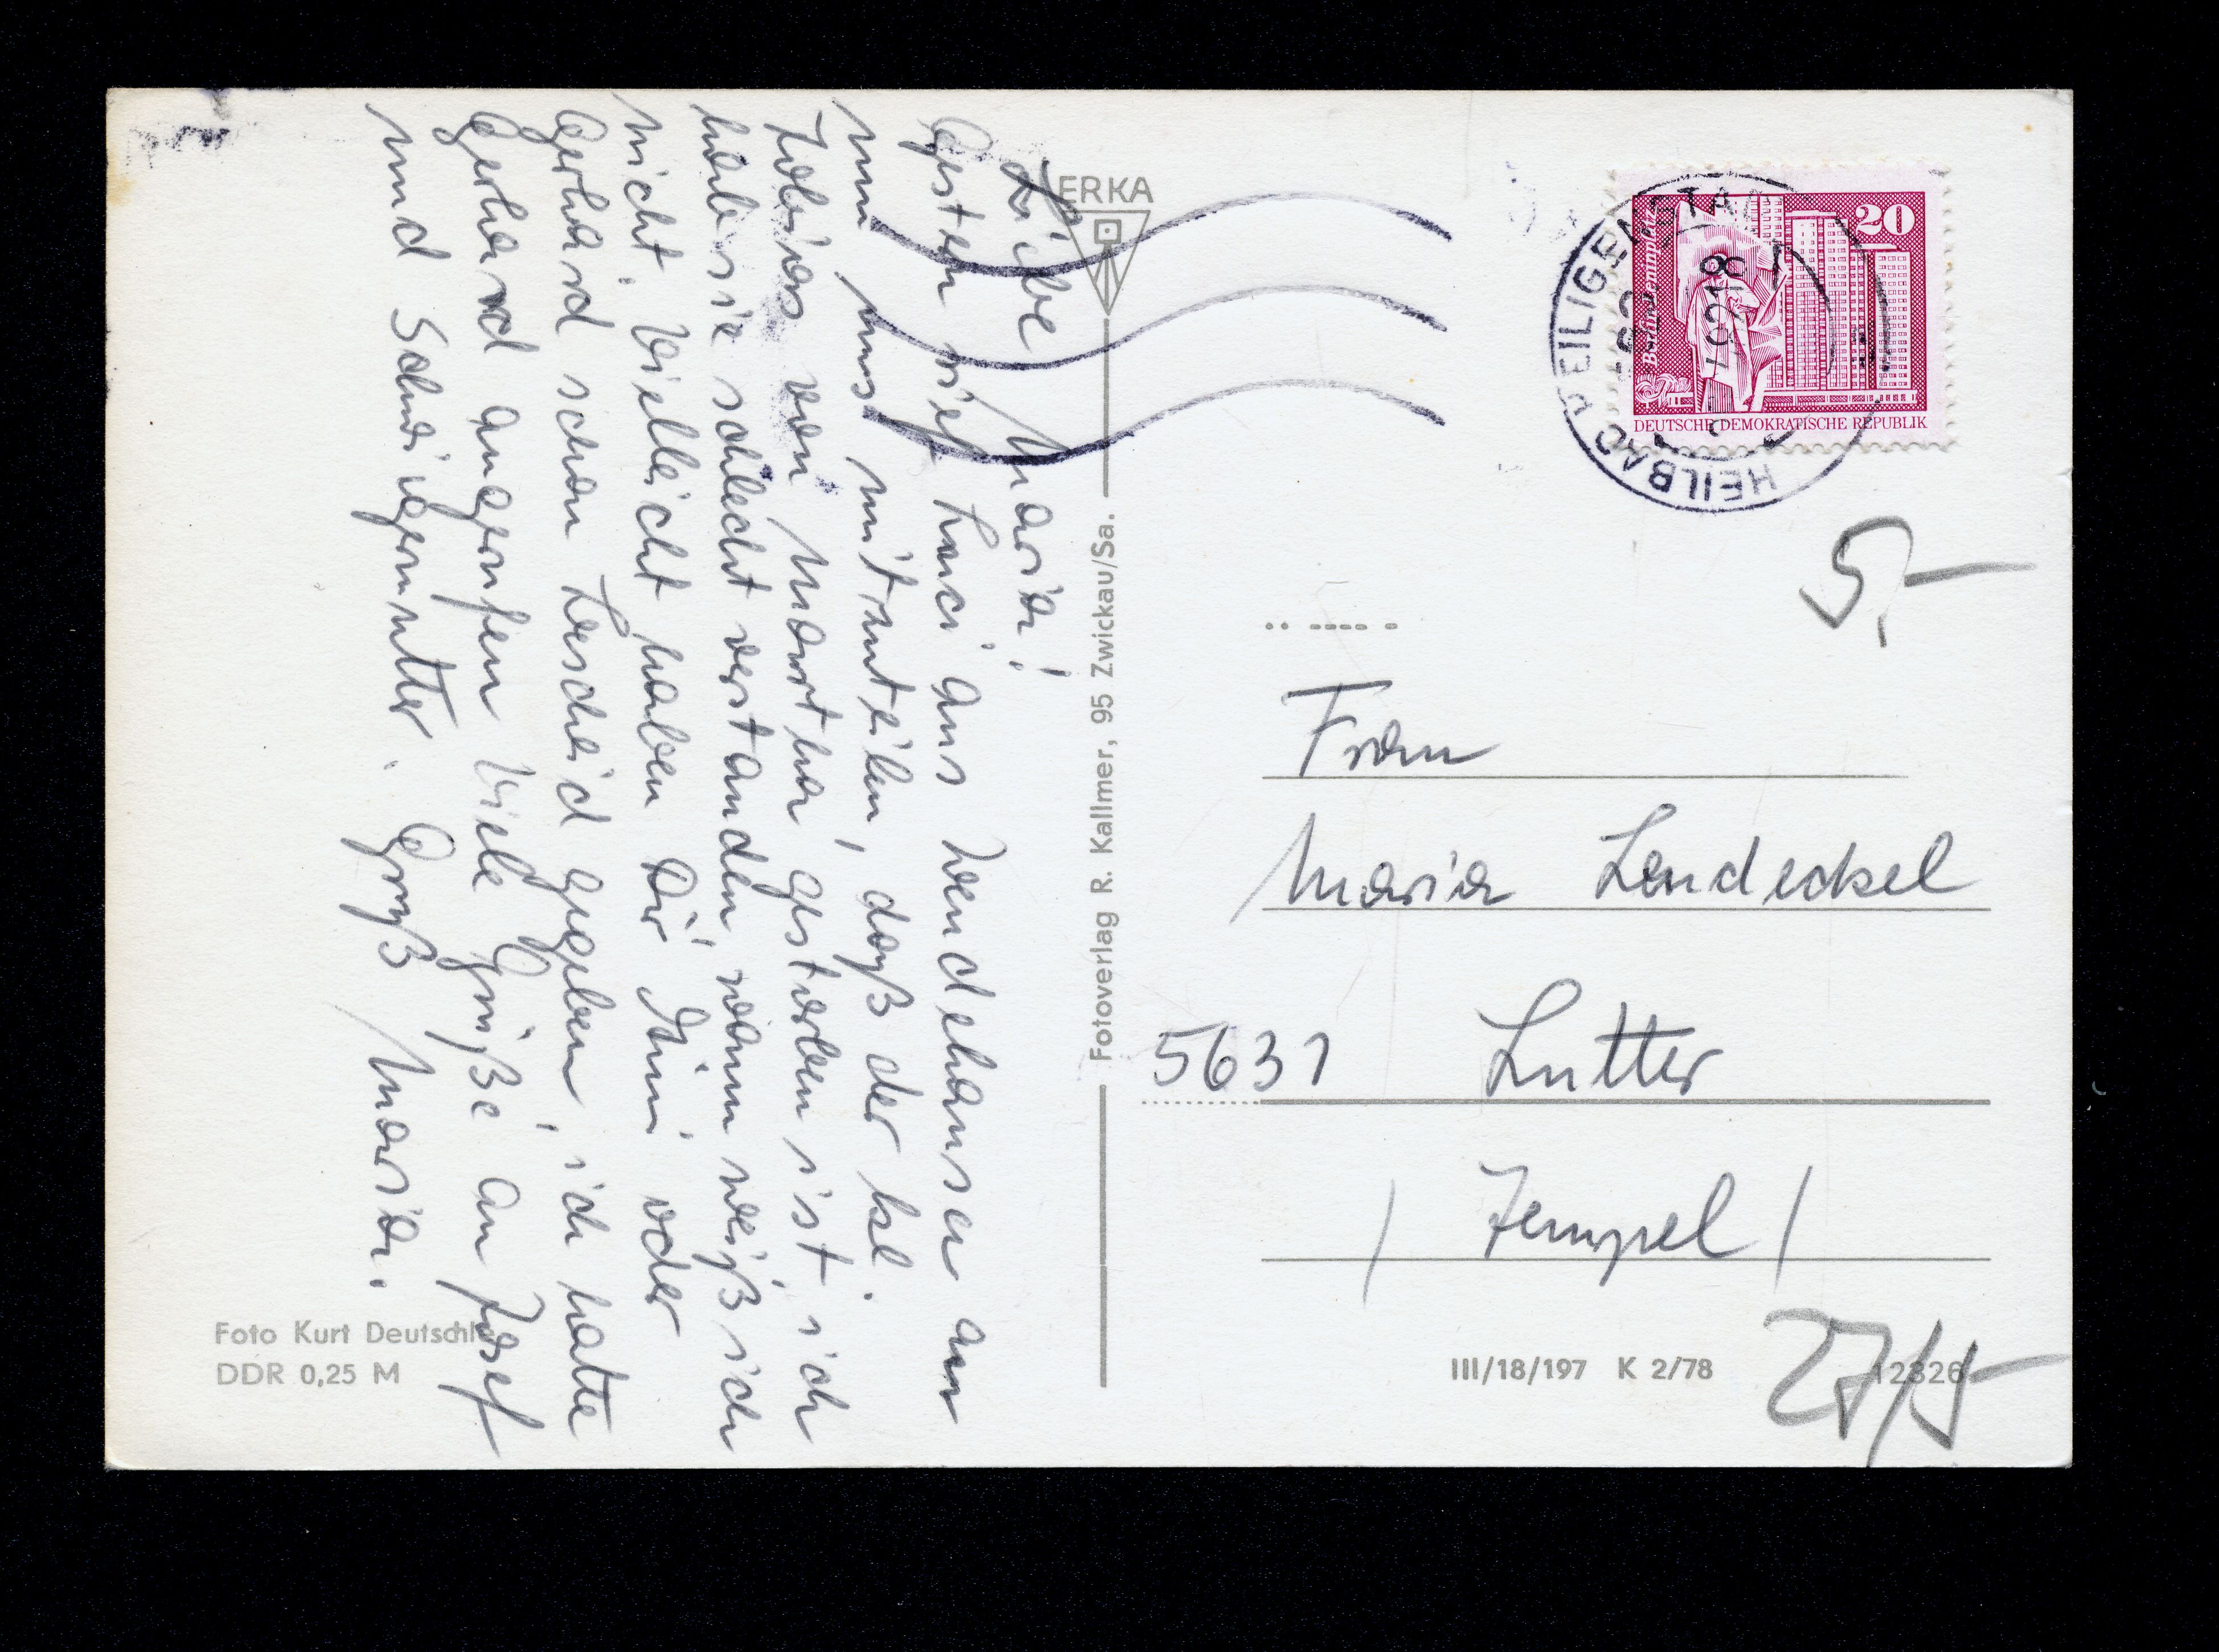 Liebe Maria!
Gestern rief Luci aus Wendehausen an
um uns mitzuteilen, daß der Kl.
Tobias von Martha gestorben ist, ich
habe sie schlecht verstanden, wann weiß ich
nicht. Vielleicht haben Dir Mimi oder
Gerhard schon Bescheid gegeben, ich hatte
Gerhard angerufen. Viele Grüße an Josef
und Schwiegermutter. Gruß Maria.
ERKA
Fotoverlag R. Kallmer, 95 Zwickau/Sa.
Foto Kurt Deutschl
DDR 0,25 M
20
Berlin-Leninplatz
DEUTSCHE DEMOKRATISCHE REPUBLIK
HEILBAD HEILIGENSTADT
5,-
Frau
Maria Lendeckel
5631 Lutter
/ Tempel /
III/18/197 K 2/78
12326
27/5-